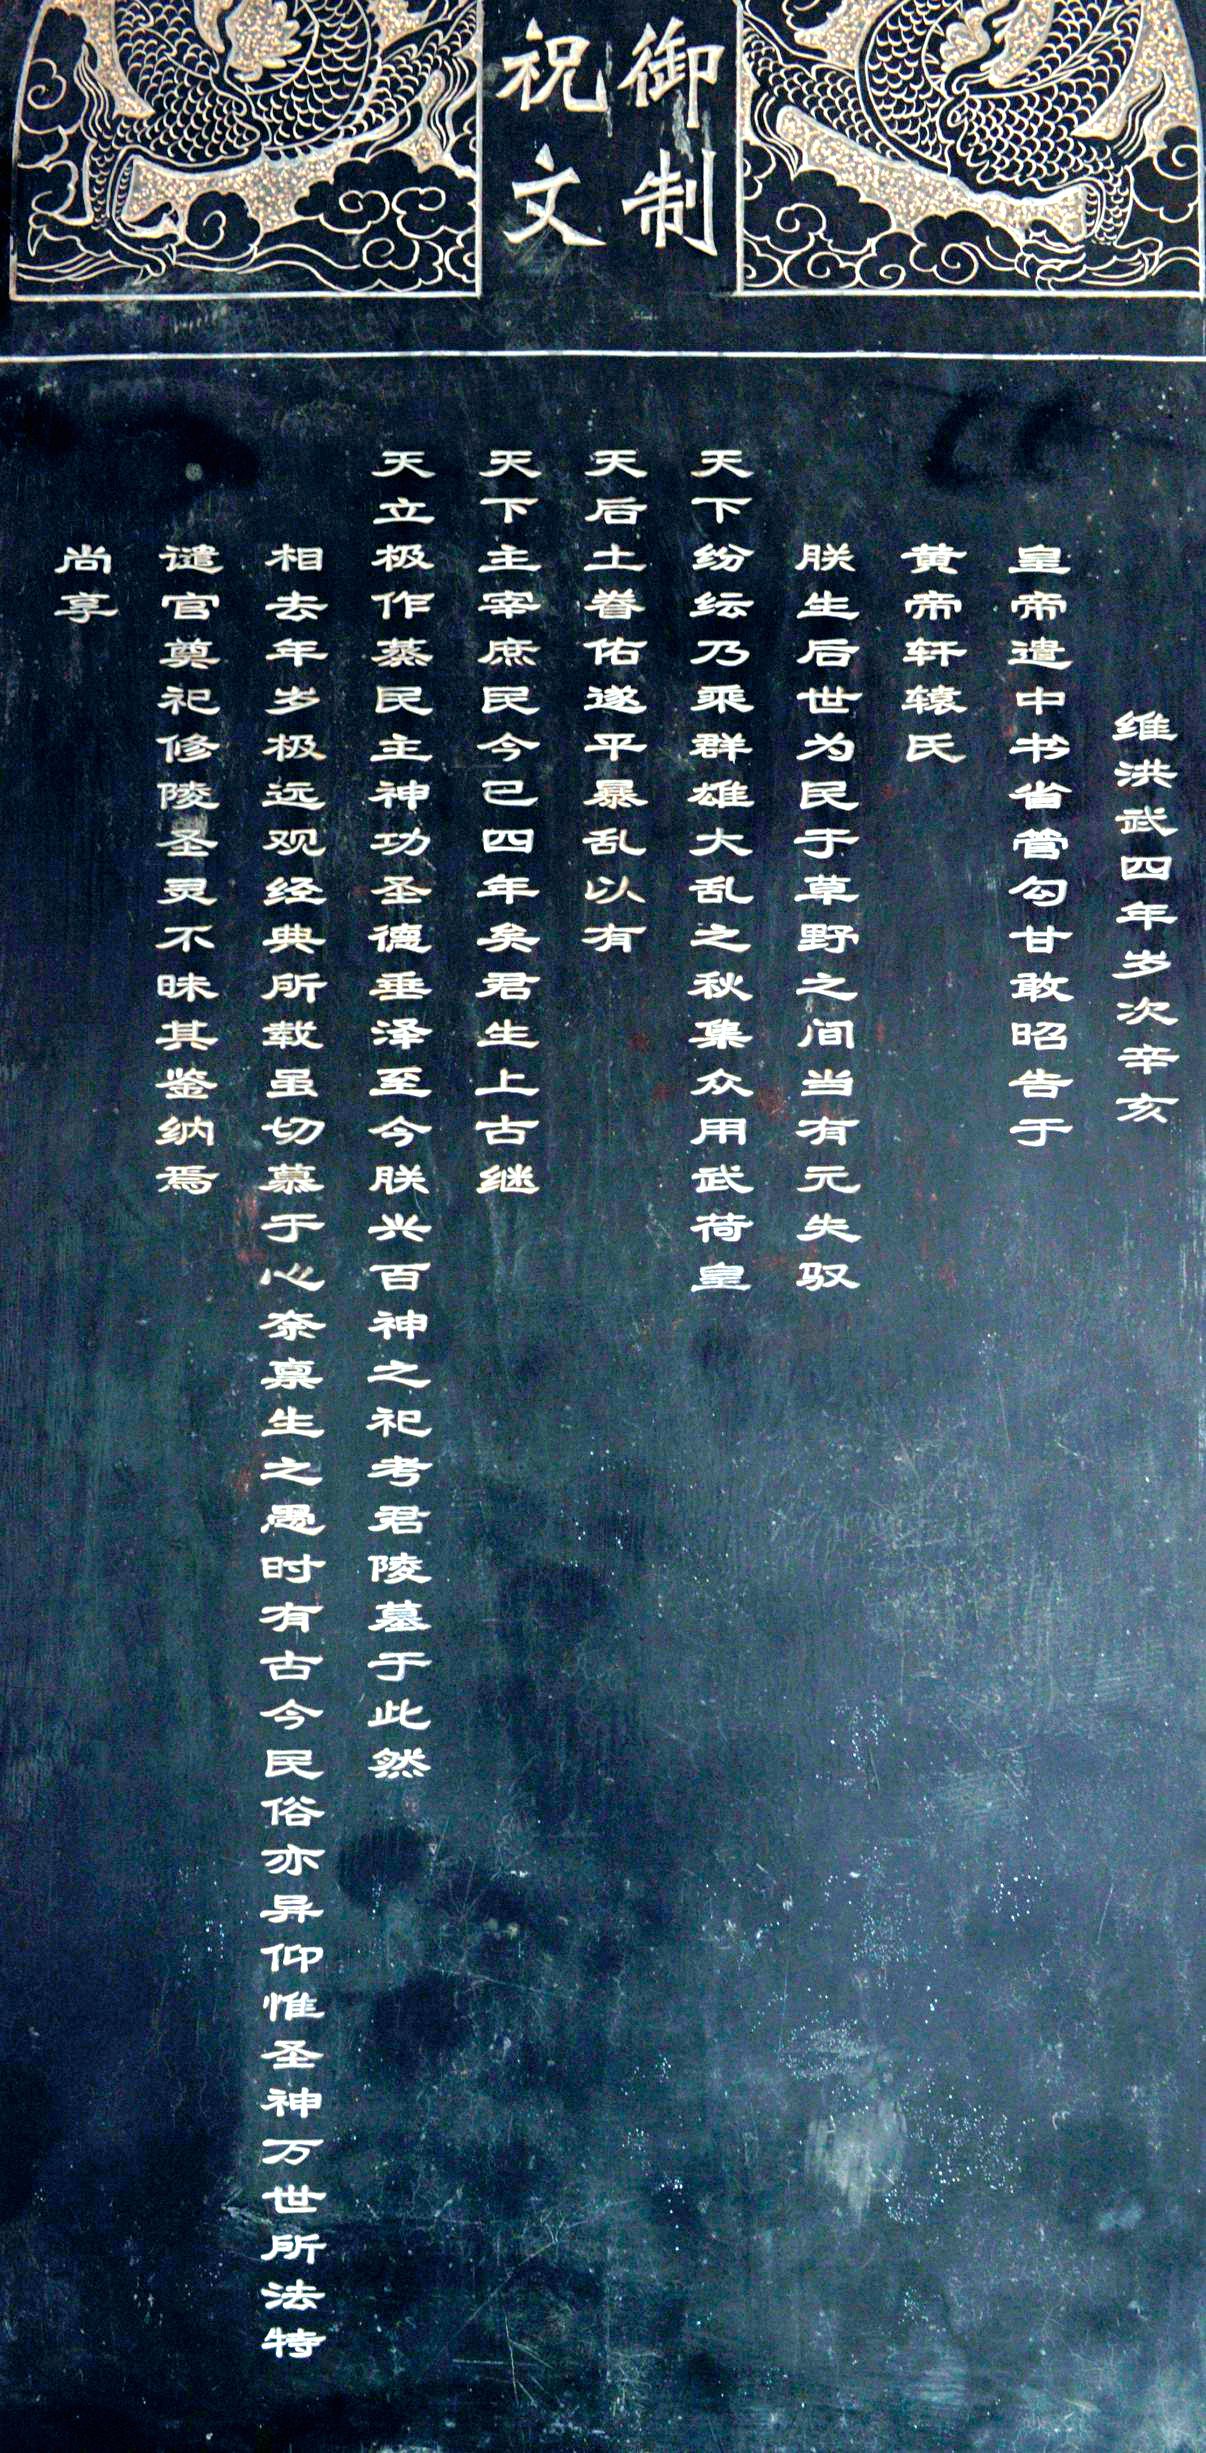 御制
祝文
维洪武四年岁次辛亥
皇帝遣中书省管勾甘敢昭告于
黄帝轩辕氏
朕生后世为民于草野之间当有元失驭
天下纷纭乃乘群雄大乱之秋集众用武荷皇
天后土眷佑遂平暴乱以有
天下主宰庶民今已四年矣君生上古继
天立极作蒸民主神功圣德垂泽至今朕兴百神之祀考君陵墓于此然
相去年岁极远观经典所载虽切慕于心奈禀生之愚时有古今民俗亦异仰惟圣神万世所法特
谴官奠祀修陵圣灵不昧其鉴纳焉
尚享